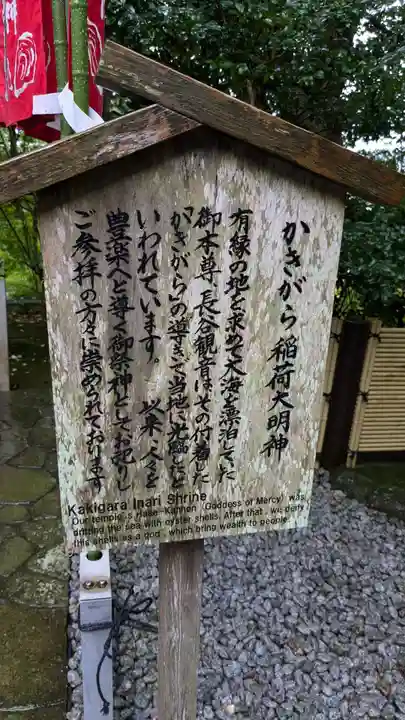 かきがら稲荷大明神
有縁の地を求めて大海を漂泊していた
御本尊、長谷観音はその付着した
「かきがら」の導きで当地に光臨したと
いわれています。以来、人々を
豊楽へと導く御祭神としてお祀りし
ご参拝の方々に崇められております
Kakigara Inari Shrine
Our temple's Hase-Kannon (Goddess of Mercy) was
drifting the sea with oyster shells. After that, we deify
this shells as a god which bring wealth to people.